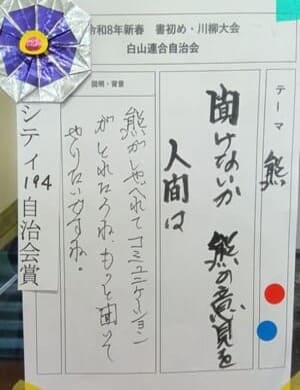 令和8年新春　書初め・川柳大会
白山連合自治会
テーマ　熊
聞けないか　熊の意見を
人間は
説明・背景
熊がしゃべれてコミュニケーション
がとれたらね、もっと聞いて
やりたいですね。
シティ194自治会賞